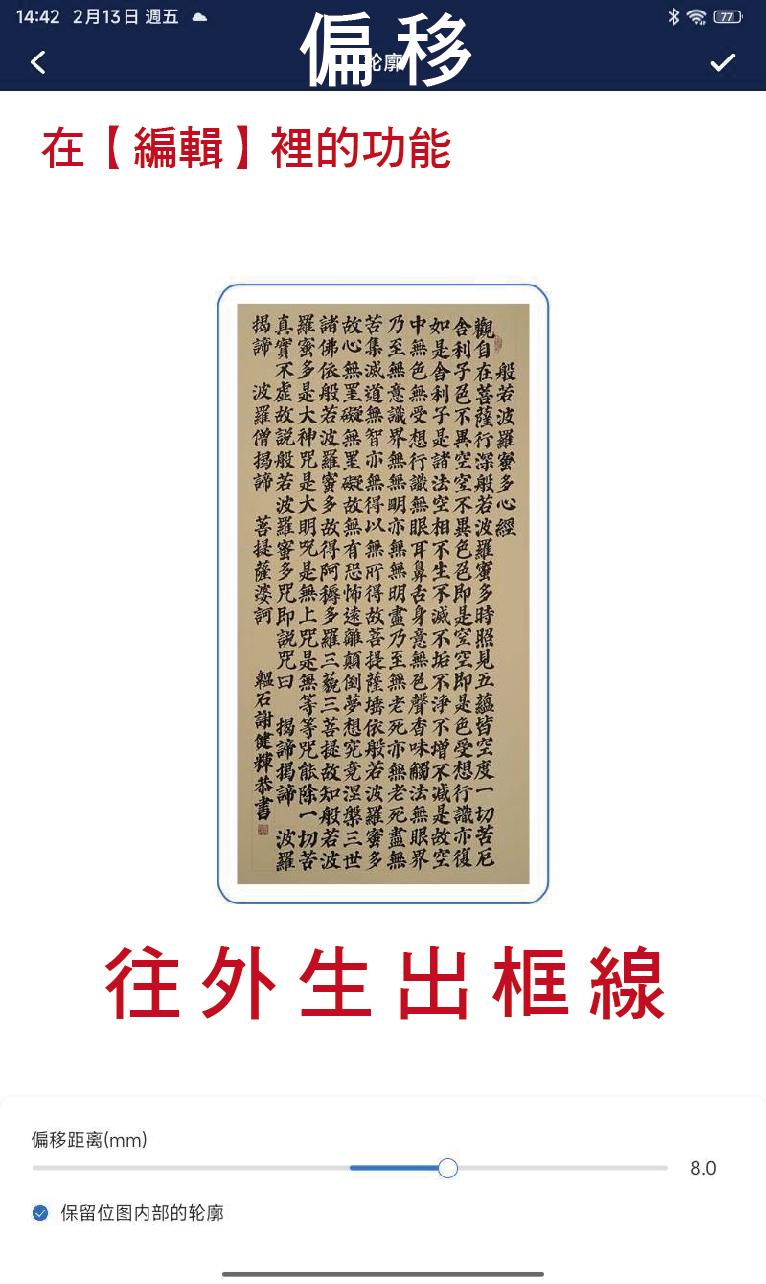 14:42 2月13日 週五 77
偏移
轮廓
在【編輯】裡的功能
般若波羅蜜多心經
觀自在菩薩行深般若波羅蜜多時照見五蘊皆空度一切苦厄
舍利子色不異空空不異色色即是空空即是色受想行識亦復
如是舍利子是諸法空相不生不滅不垢不淨不增不減是故空
中無色無受想行識無眼耳鼻舌身意無色聲香味觸法無眼界
乃至無意識界無無明亦無無明盡乃至無老死亦無老死盡無
苦集滅道無智亦無得以無所得故菩提薩埵依般若波羅蜜多
故心無罣礙無罣礙故無有恐怖遠離顛倒夢想究竟涅槃三世
諸佛依般若波羅蜜多故得阿耨多羅三藐三菩提故知般若波
羅蜜多是大神咒是大明咒是無上咒是無等等咒能除一切苦
真實不虛故説般若波羅蜜多咒即説咒曰 揭諦揭諦 波羅
揭諦 波羅僧揭諦 菩提薩婆訶 韞石謝健輝恭書
往外生出框線
偏移距离(mm)
8.0
保留位图内部的轮廓